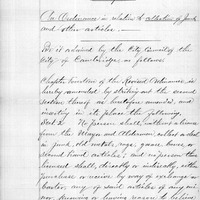 An Ordinance in relation to collectors of junk
and other articles.
Be it ordained by the City Council of the
City of Cambridge, as follows:
Chapter fourteen of the Revised Ordinances, is
hereby amended by striking out the second
section thereof as heretofore amended, and
inserting in its place the following,
Sect. 2. No person shall, without a license
from the Mayor and Aldermen, collect or deal
in junk, old metals, rags, gause bones, or
second hand articles; and no person thus
licensed shall, directly or indirectly, either
purchase or receive by way of exchange or
barter, any of said articles of any mi-
nor, knowing or having reason to believe